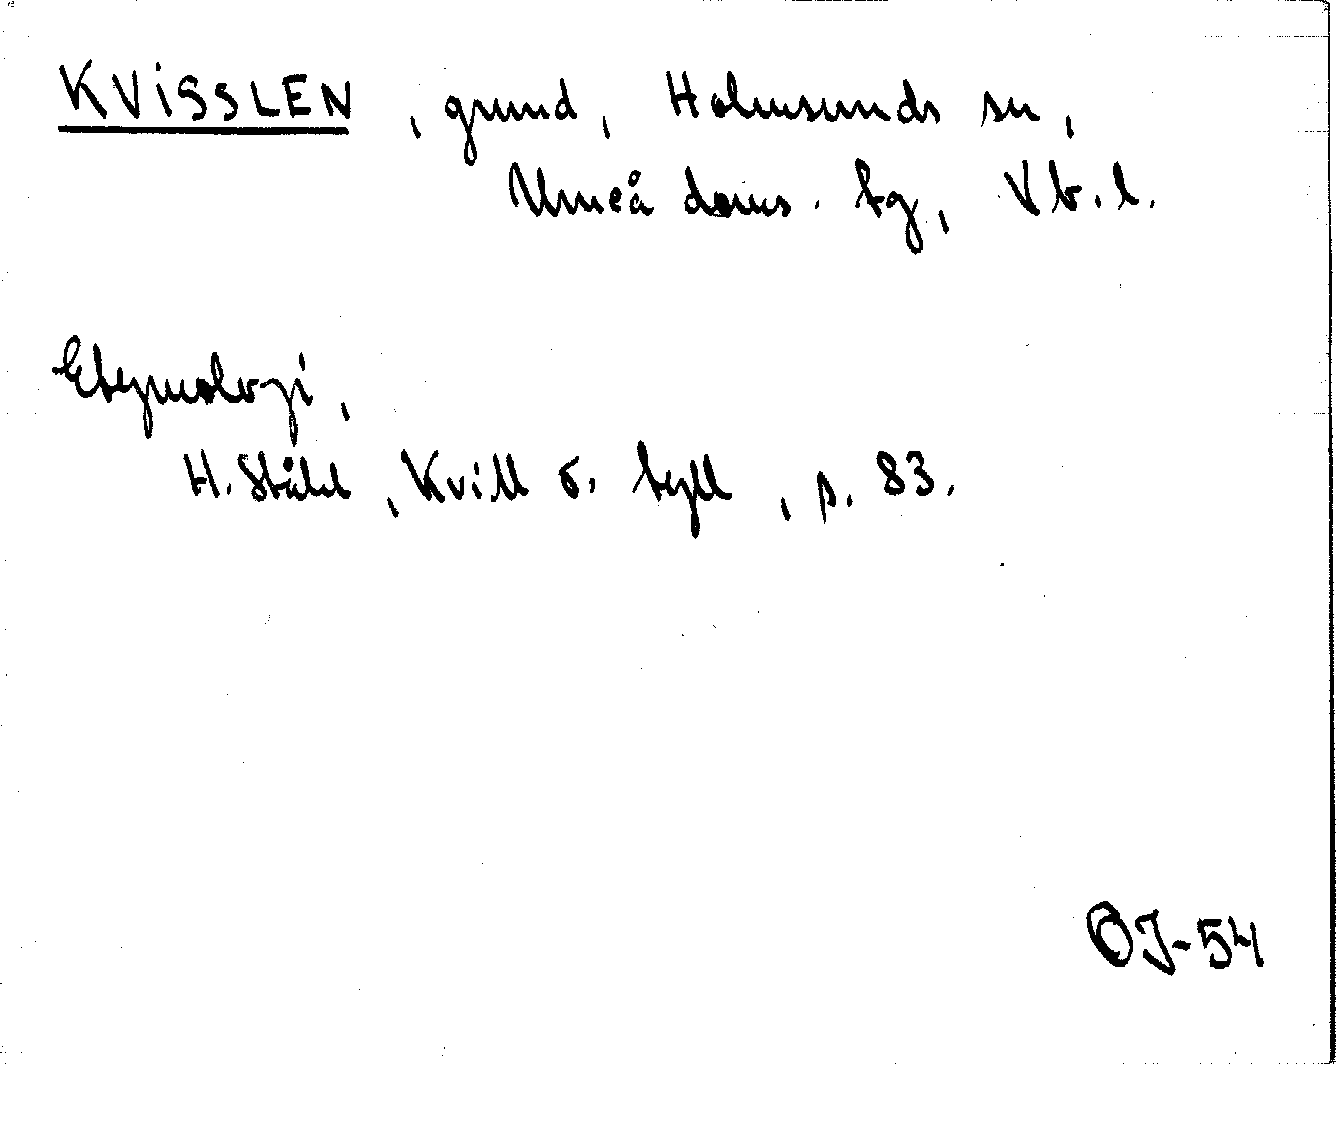 KVISSLEN, grund, Holmsunds sn,
Umeå doms. tg, Vb. l.
Etymologi,
H. Ståhl, Kvill o. tyll, p. 83.
OJ-54